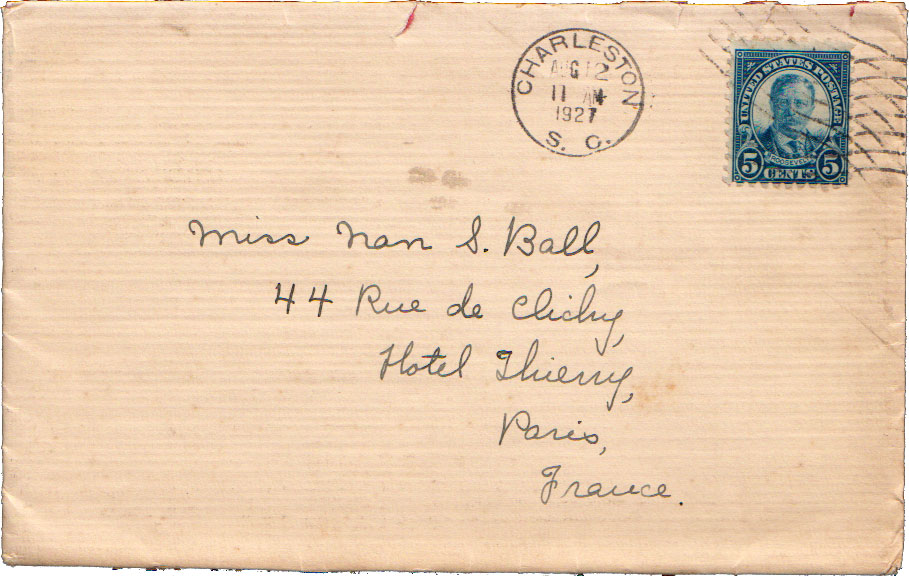 CHARLESTON
AUG 12
11 AM
1927
S. C.
UNITED STATES POSTAGE
ROOSEVELT
5 CENTS 5
Miss Nan S. Ball,
44 Rue de Clichy,
Hotel Thierry,
Paris,
France.